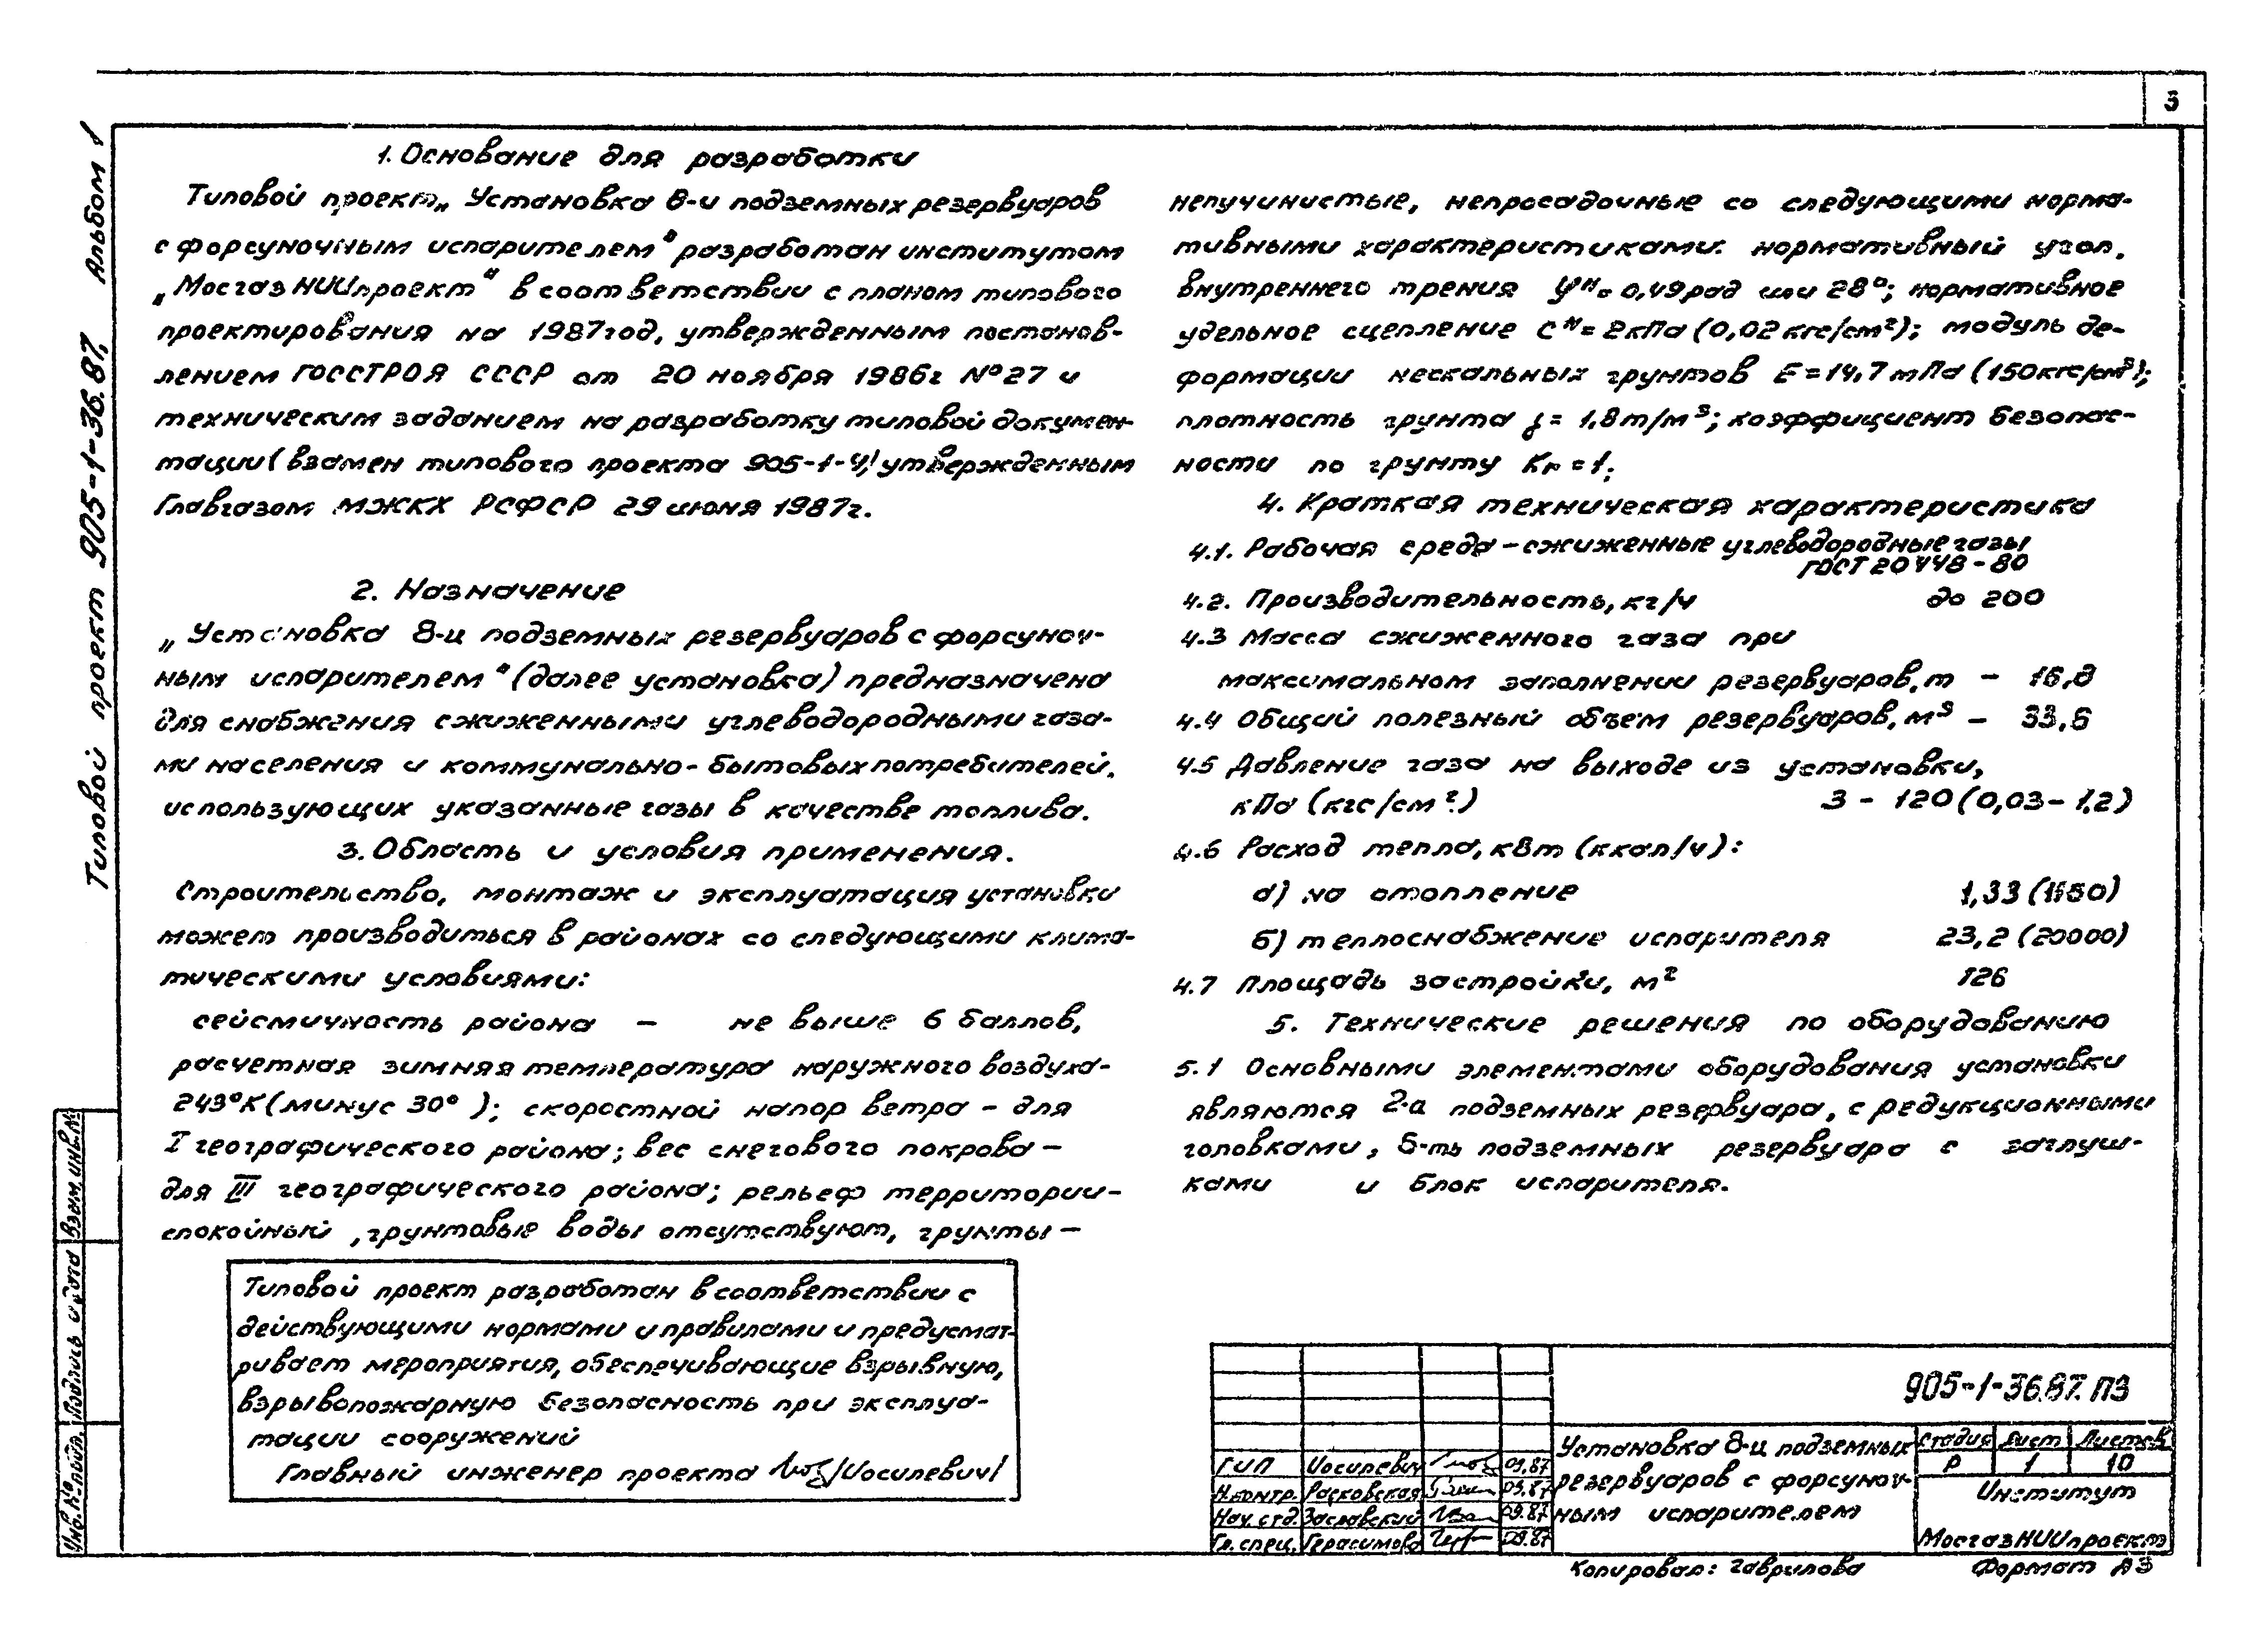 3
Типовой проект 905-1-36.87. Альбом 1
1. Основание для разработки
Типовой проект „Установка 8-и подземных резервуаров
с форсуночным испарителем" разработан институтом
„МосгазНИИпроект" в соответствии с планом типового
проектирования на 1987 год, утвержденным постанов-
лением ГОССТРОЯ СССР от 20 ноября 1986г №27 и
техническим заданием на разработку типовой докумен-
тации (взамен типового проекта 905-1-4), утвержденным
Главгазом МЖКХ РСФСР 29 июня 1987г.
2. Назначение
„Установка 8-и подземных резервуаров с форсуноч-
ным испарителем" (далее установка) предназначена
для снабжения сжиженными углеводородными газа-
ми населения и коммунально-бытовых потребителей,
использующих указанные газы в качестве топлива.
3. Область и условия применения.
Строительство, монтаж и эксплуатация установки
может производиться в районах со следующими клима-
тическими условиями:
сейсмичность района — не выше 6 баллов,
расчетная зимняя температура наружного воздуха-
243°К (минус 30° ); скоростной напор ветра - для
I географического района; вес снегового покрова —
для III географического района; рельеф территории-
спокойный, грунтовые воды отсутствуют, грунты —
Типовой проект разработан в соответствии с
действующими нормами и правилами и предусмат-
ривает мероприятия, обеспечивающие взрывную,
взрывопожарную безопасность при эксплуа-
тации сооружений
Главный инженер проекта /Иосилевич/
непучинистые, непросадочные со следующими норма-
тивными характеристиками: нормативный угол
внутреннего трения φн = 0,49 рад или 28°; нормативное
удельное сцепление Cн = 2кПа (0,02 кгс/см²); модуль де-
формации нескальных грунтов E = 14,7 мПа (150кгс/см²);
плотность грунта γ = 1,8 т/м³; коэффициент безопас-
ности по грунту Кг = 1.
4. Краткая техническая характеристика
4.1. Рабочая среда - сжиженные углеводородные газы
ГОСТ 20448-80
4.2. Производительность, кг/ч до 200
4.3 Масса сжиженного газа при
максимальном заполнении резервуаров, т — 16,8
4.4 Общий полезный объем резервуаров, м³ — 33,6
4.5 Давление газа на выходе из установки,
кПа (кгс/см²) 3 - 120 (0,03 - 1,2)
4.6 Расход тепла, кВт (ккал/ч):
а) на отопление 1,33 (1150)
б) теплоснабжение испарителя 23,2 (20000)
4.7 Площадь застройки, м² 126
5. Технические решения по оборудованию
5.1 Основными элементами оборудования установки
являются 2-а подземных резервуара, с редукционными
головками, 6-ть подземных резервуара с заглуш-
ками и блок испарителя.
905-1-36.87. ПЗ
Установка 8-и подземных
резервуаров с форсуноч-
ным испарителем
Стадия Лист Листов
Р 1 10
Институт
МосгазНИИпроект
ГИП Иосилевич 09.87
Н.контр. Расковская 09.87
Нач. отд. Заславский 09.87
Гл. спец. Герасимова 09.87
Взам. инв. №
Подпись и дата
Инв. № подл.
Копировал: Гаврилова
Формат А3